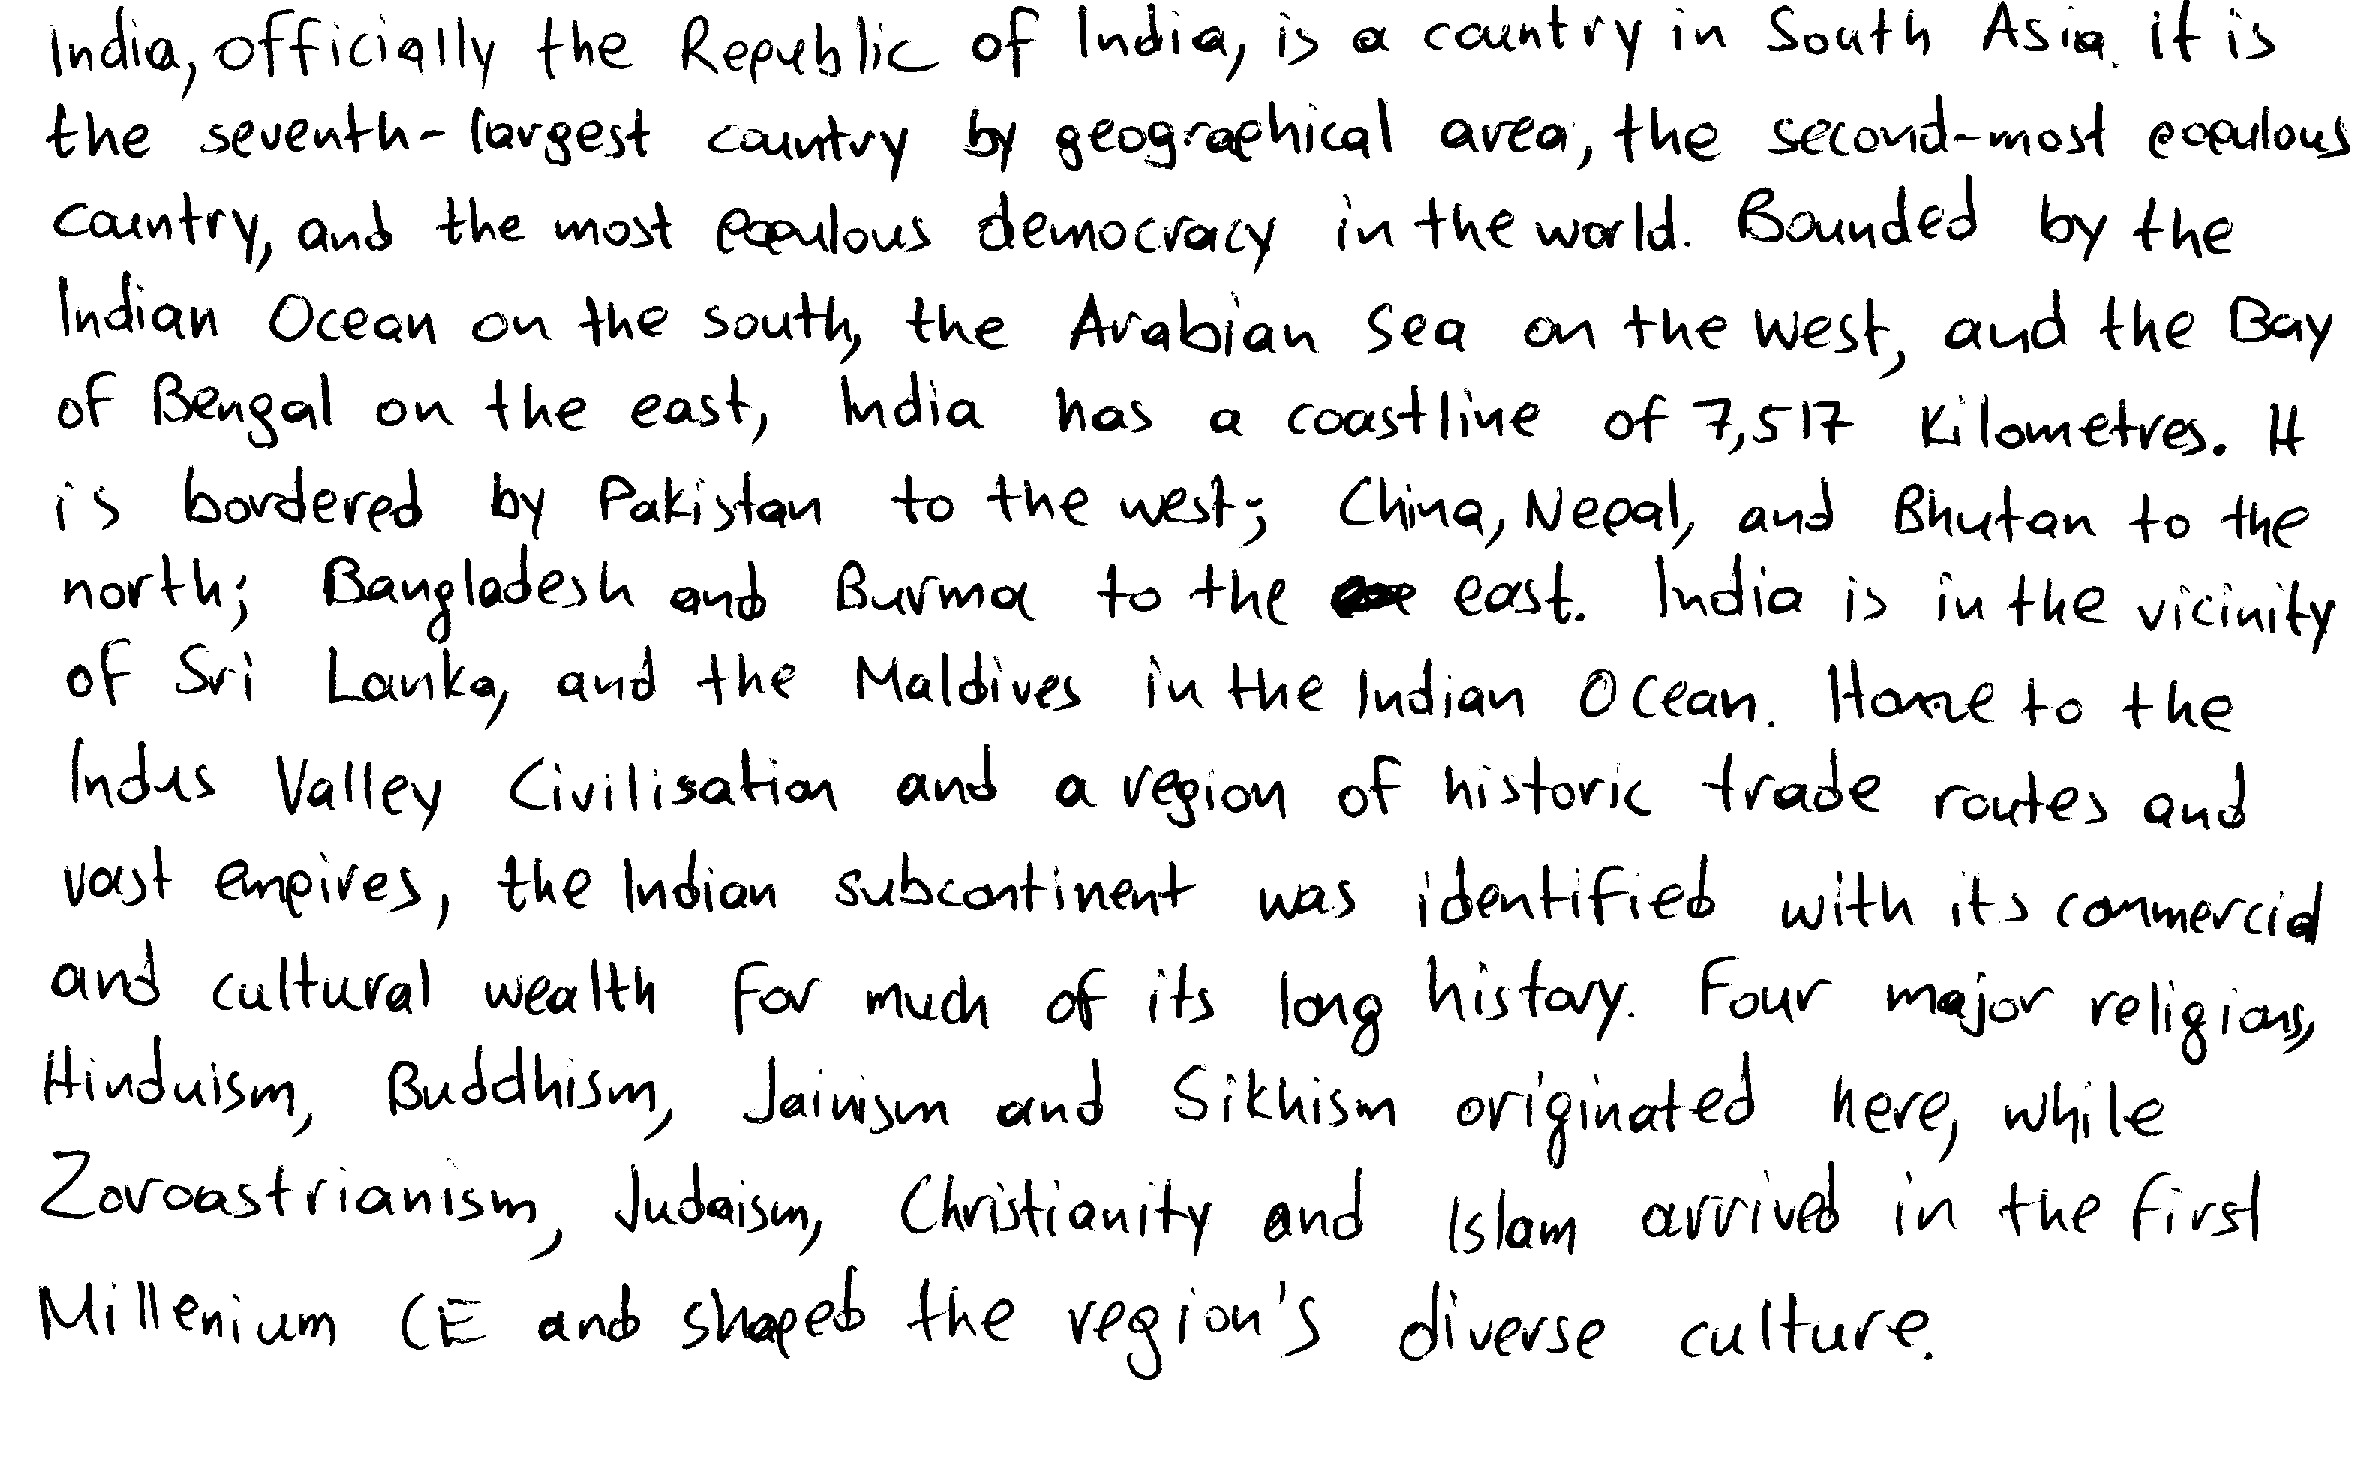 India, officially the Republic of India, is a country in South Asia. it is
the seventh-largest country by geographical area, the second-most populous
country, and the most populous democracy in the world. Bounded by the
Indian Ocean on the south, the Arabian Sea on the west, and the Bay
of Bengal on the east, India has a coastline of 7,517 kilometres. It
is bordered by Pakistan to the west; China, Nepal, and Bhutan to the
north; Bangladesh and Burma to the east. India is in the vicinity
of Sri Lanka, and the Maldives in the Indian Ocean. Home to the
Indus Valley Civilisation and a region of historic trade routes and
vast empires, the Indian subcontinent was identified with its commercial
and cultural wealth for much of its long history. Four major religions,
Hinduism, Buddhism, Jainism and Sikhism originated here, while
Zoroastrianism, Judaism, Christianity and Islam arrived in the first
Millenium CE and shaped the region's diverse culture.